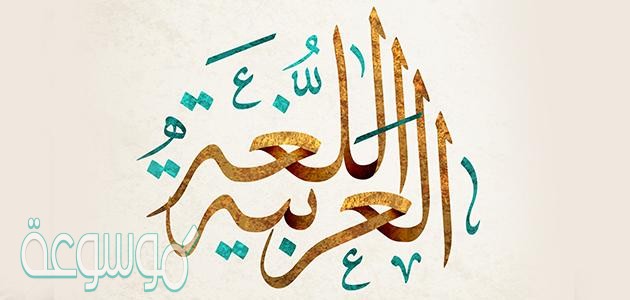 اللُّغة
العربية
موسوعة